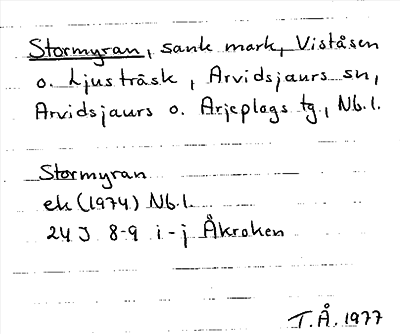 Stormyran, sank mark, Viståsen
o. Ljusträsk, Arvidsjaurs sn,
Arvidsjaurs o. Arjeplogs tg., Nb.l.
Stormyran
ek (1974) Nb.l.
24J 8-9 i-j Åkroken
T.Å. 1977